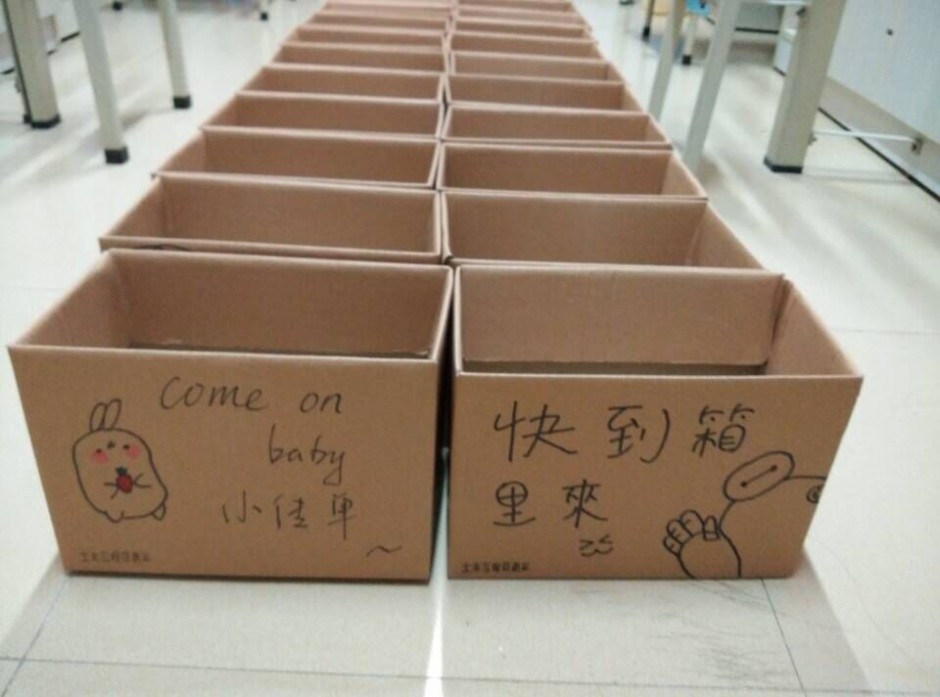 come on
baby
小佳单
~
快到箱
里來